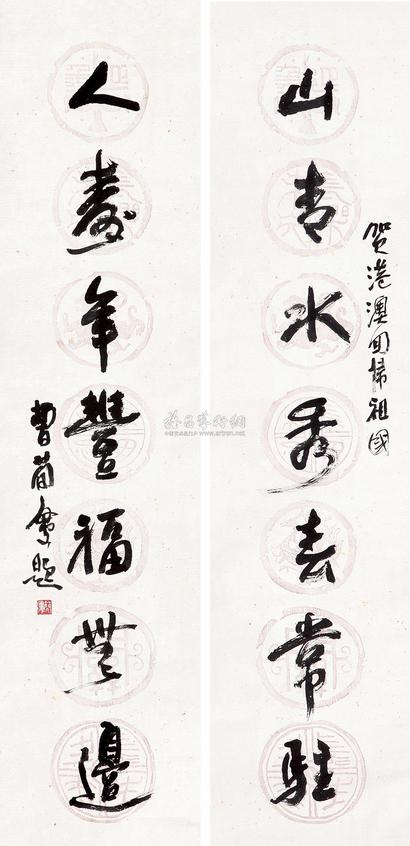 贺港澳回歸祖國
山青水秀春常駐
人壽年豐福無邊
曹簡樓題